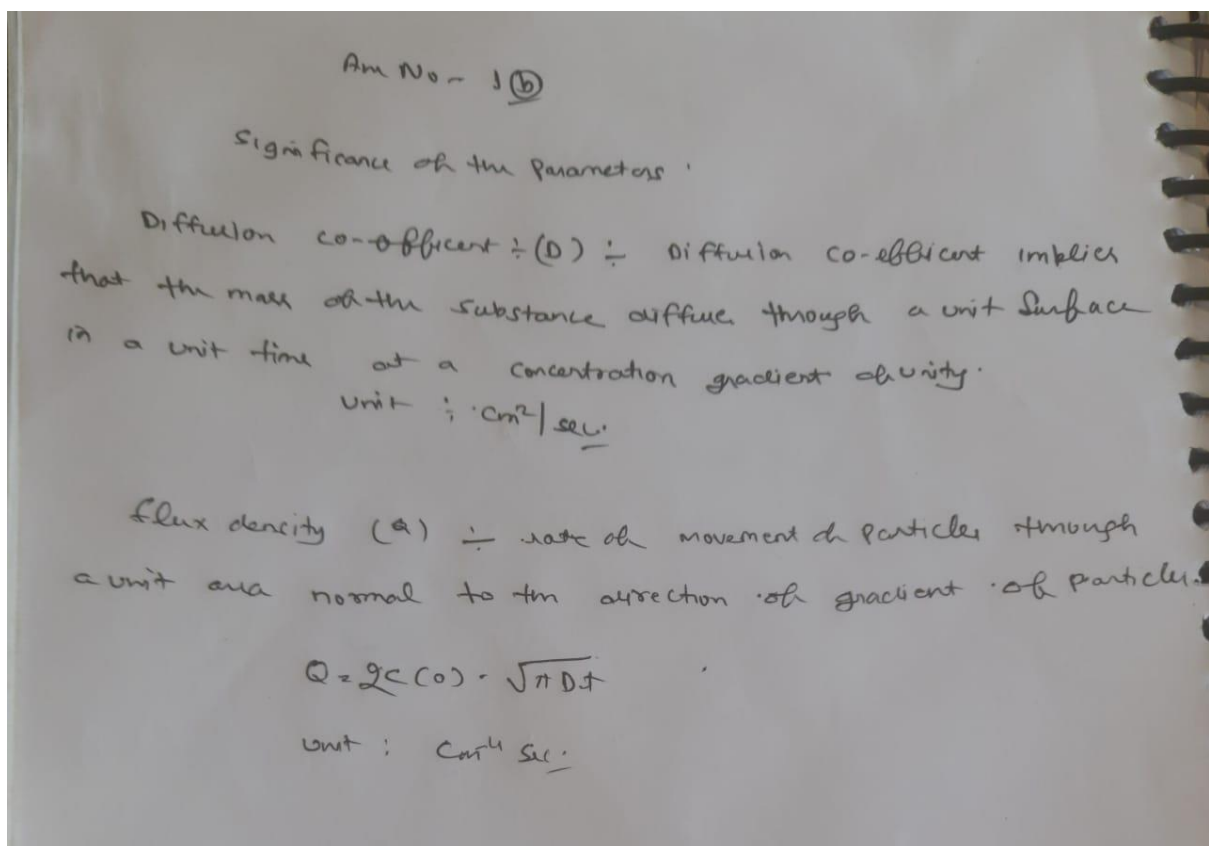 Ans No - 1 (b)
Significance of the Parameters.
Diffusion co-efficient ÷ (D) ÷ Diffusion co-efficient implies
that the mass of the substance diffuse through a unit Surface
in a unit time at a concentration gradient of unity.
unit : cm²/sec.
flux dencity (Q) ÷ rate of movement of particles through
a unit area normal to the direction of gradient of particles.
Q = 2C(0) · √πDt
unit : cm⁻⁴ sec.